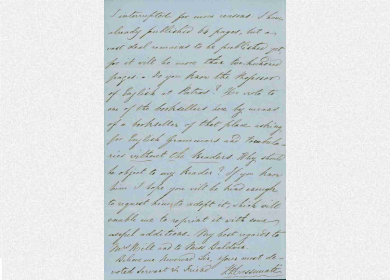 I interrupted for more reasons. I have
already published 64 pages, but a
deal remains to be published yet
for it will be more than two hundred
pages. Do you know the Professor
of English at Patras? He wrote to
one of the booksellers here by means
of a bookseller of that place asking
for English Grammars and Vocabula-
ries without the Readers. Why should
he object to my Reader? If you know
him I hope you will be kind enough
to request him to adopt it, which will
enable me to reprint it with some
useful additions. My best regards to
Mrs Hill and to Miss
Believe me Reverend Sir, your most de-
voted Servant &amp; friend